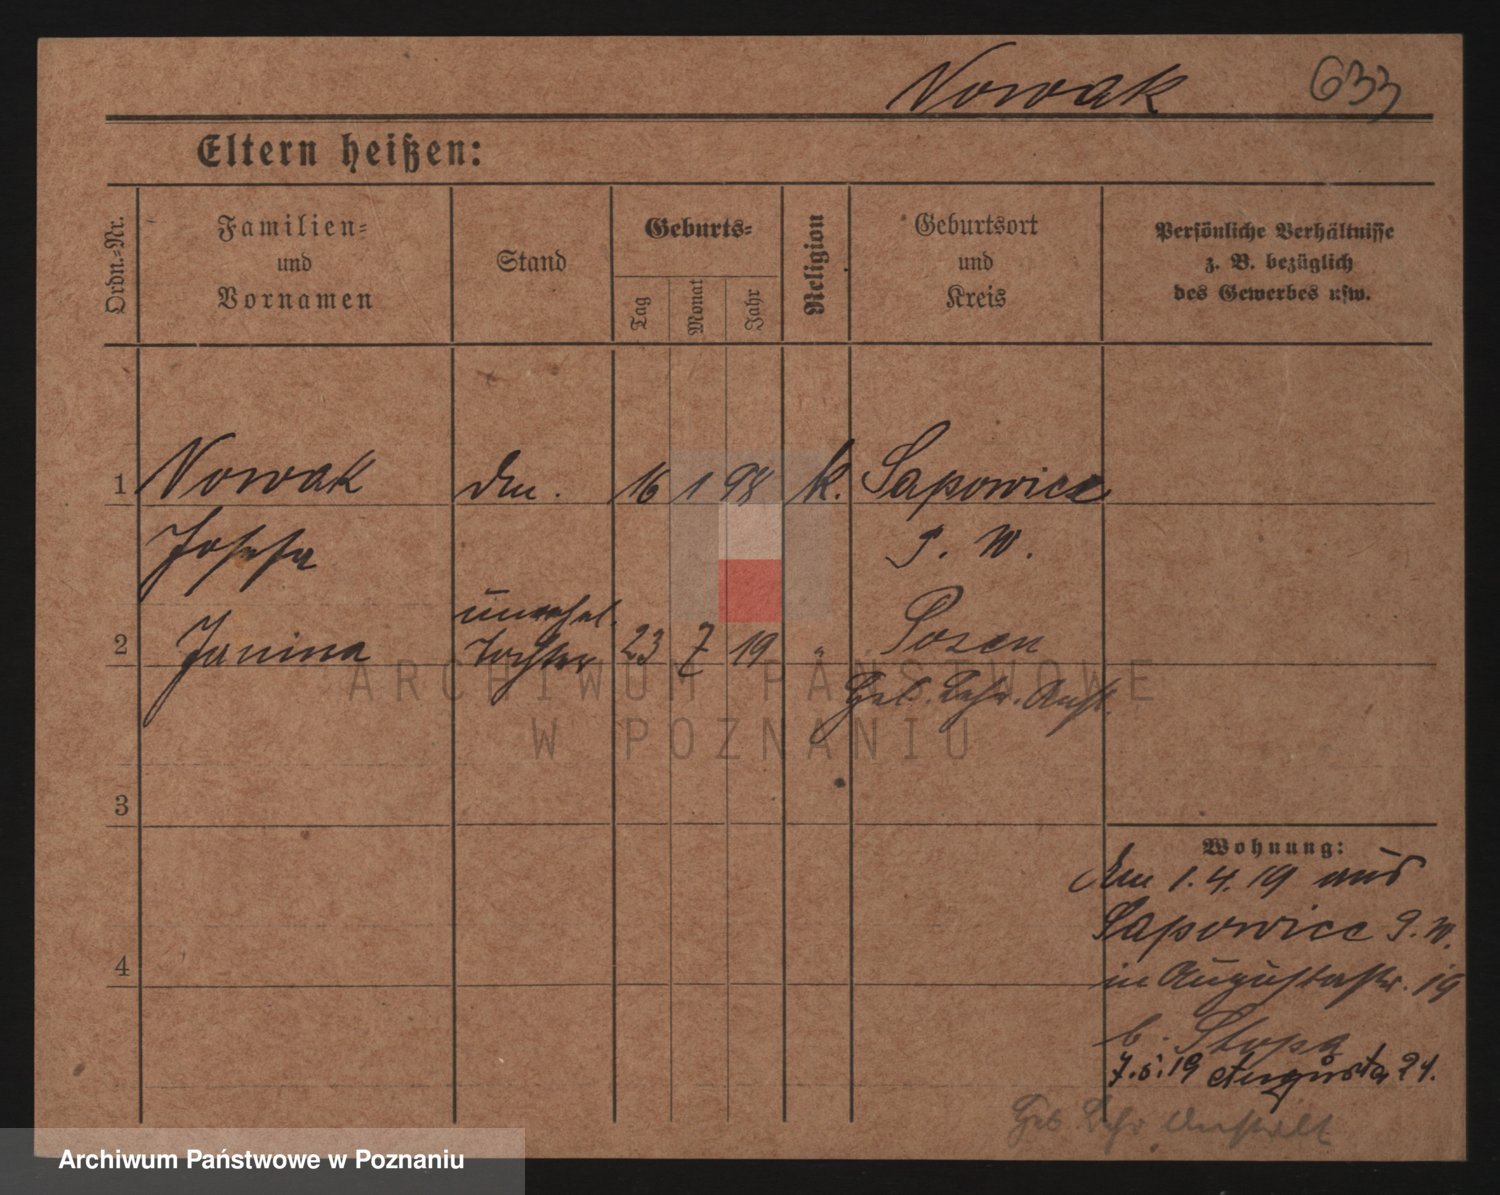 Nowak 633
Eltern heißen:
Ordn.-Nr.
Familien-
und
Vornamen
Stand
Geburts-
Tag
Monat
Jahr
Religion
Geburtsort
und
Kreis
Persönliche Verhältnisse
z. B. bezüglich
des Gewerbes usw.
1 Nowak 16 1 98 k. Sapowice
Josefa P. W.
unehel.
2 Janina Tochter 23 7 19 " Posen
Geb. Lehr. Anst.
3
4
Wohnung:
Am 1.4.19 aus
Sapowice P. W.
in Augustastr. 19
b. Stopa
7.5.19 Augusta 21.
Geb Lehr Anstalt
ARCHIWUM PAŃSTWOWE
W POZNANIU
Archiwum Państwowe w Poznaniu